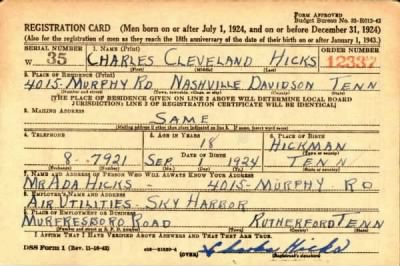 FORM APPROVED
Budget Bureau No. 33-R012-42
REGISTRATION CARD (Men born on or after July 1, 1924, and on or before December 31, 1924)
(Also for the registration of men as they reach the 18th anniversary of the date of their birth on or after January 1, 1943.)
SERIAL NUMBER 1. NAME (Print) ORDER NUMBER
W 35 CHARLES CLEVELAND HICKS 12337
(First) (Middle) (Last)
2. PLACE OF RESIDENCE (Print)
4015-MURPHY RD NASHVILLE DAVIDSON TENN
(Number and street) (Town, township, village, or city) (County) (State)
[THE PLACE OF RESIDENCE GIVEN ON LINE 2 ABOVE WILL DETERMINE LOCAL BOARD
JURISDICTION; LINE 2 OF REGISTRATION CERTIFICATE WILL BE IDENTICAL]
3. MAILING ADDRESS
SAME
[Mailing address if other than place indicated on line 2. If same, insert word same]
4. TELEPHONE 5. AGE IN YEARS 6. PLACE OF BIRTH
18 HICKMAN
8-7921 DATE OF BIRTH
SEP 1 1924 TENN
7. NAME AND ADDRESS OF PERSON WHO WILL ALWAYS KNOW YOUR ADDRESS
MR ADA HICKS - 4015-MURPHY RD
8. EMPLOYER'S NAME AND ADDRESS
AIR UTILITIES - SKY HARBOR
9. PLACE OF EMPLOYMENT OR BUSINESS
MURFRESBORO ROAD RUTHERFORD TENN
I AFFIRM THAT I HAVE VERIFIED ABOVE ANSWERS AND THAT THEY ARE TRUE.
DSS Form 1 (Rev. 11-16-42) (OVER) Charles Hicks
(Registrant's signature)